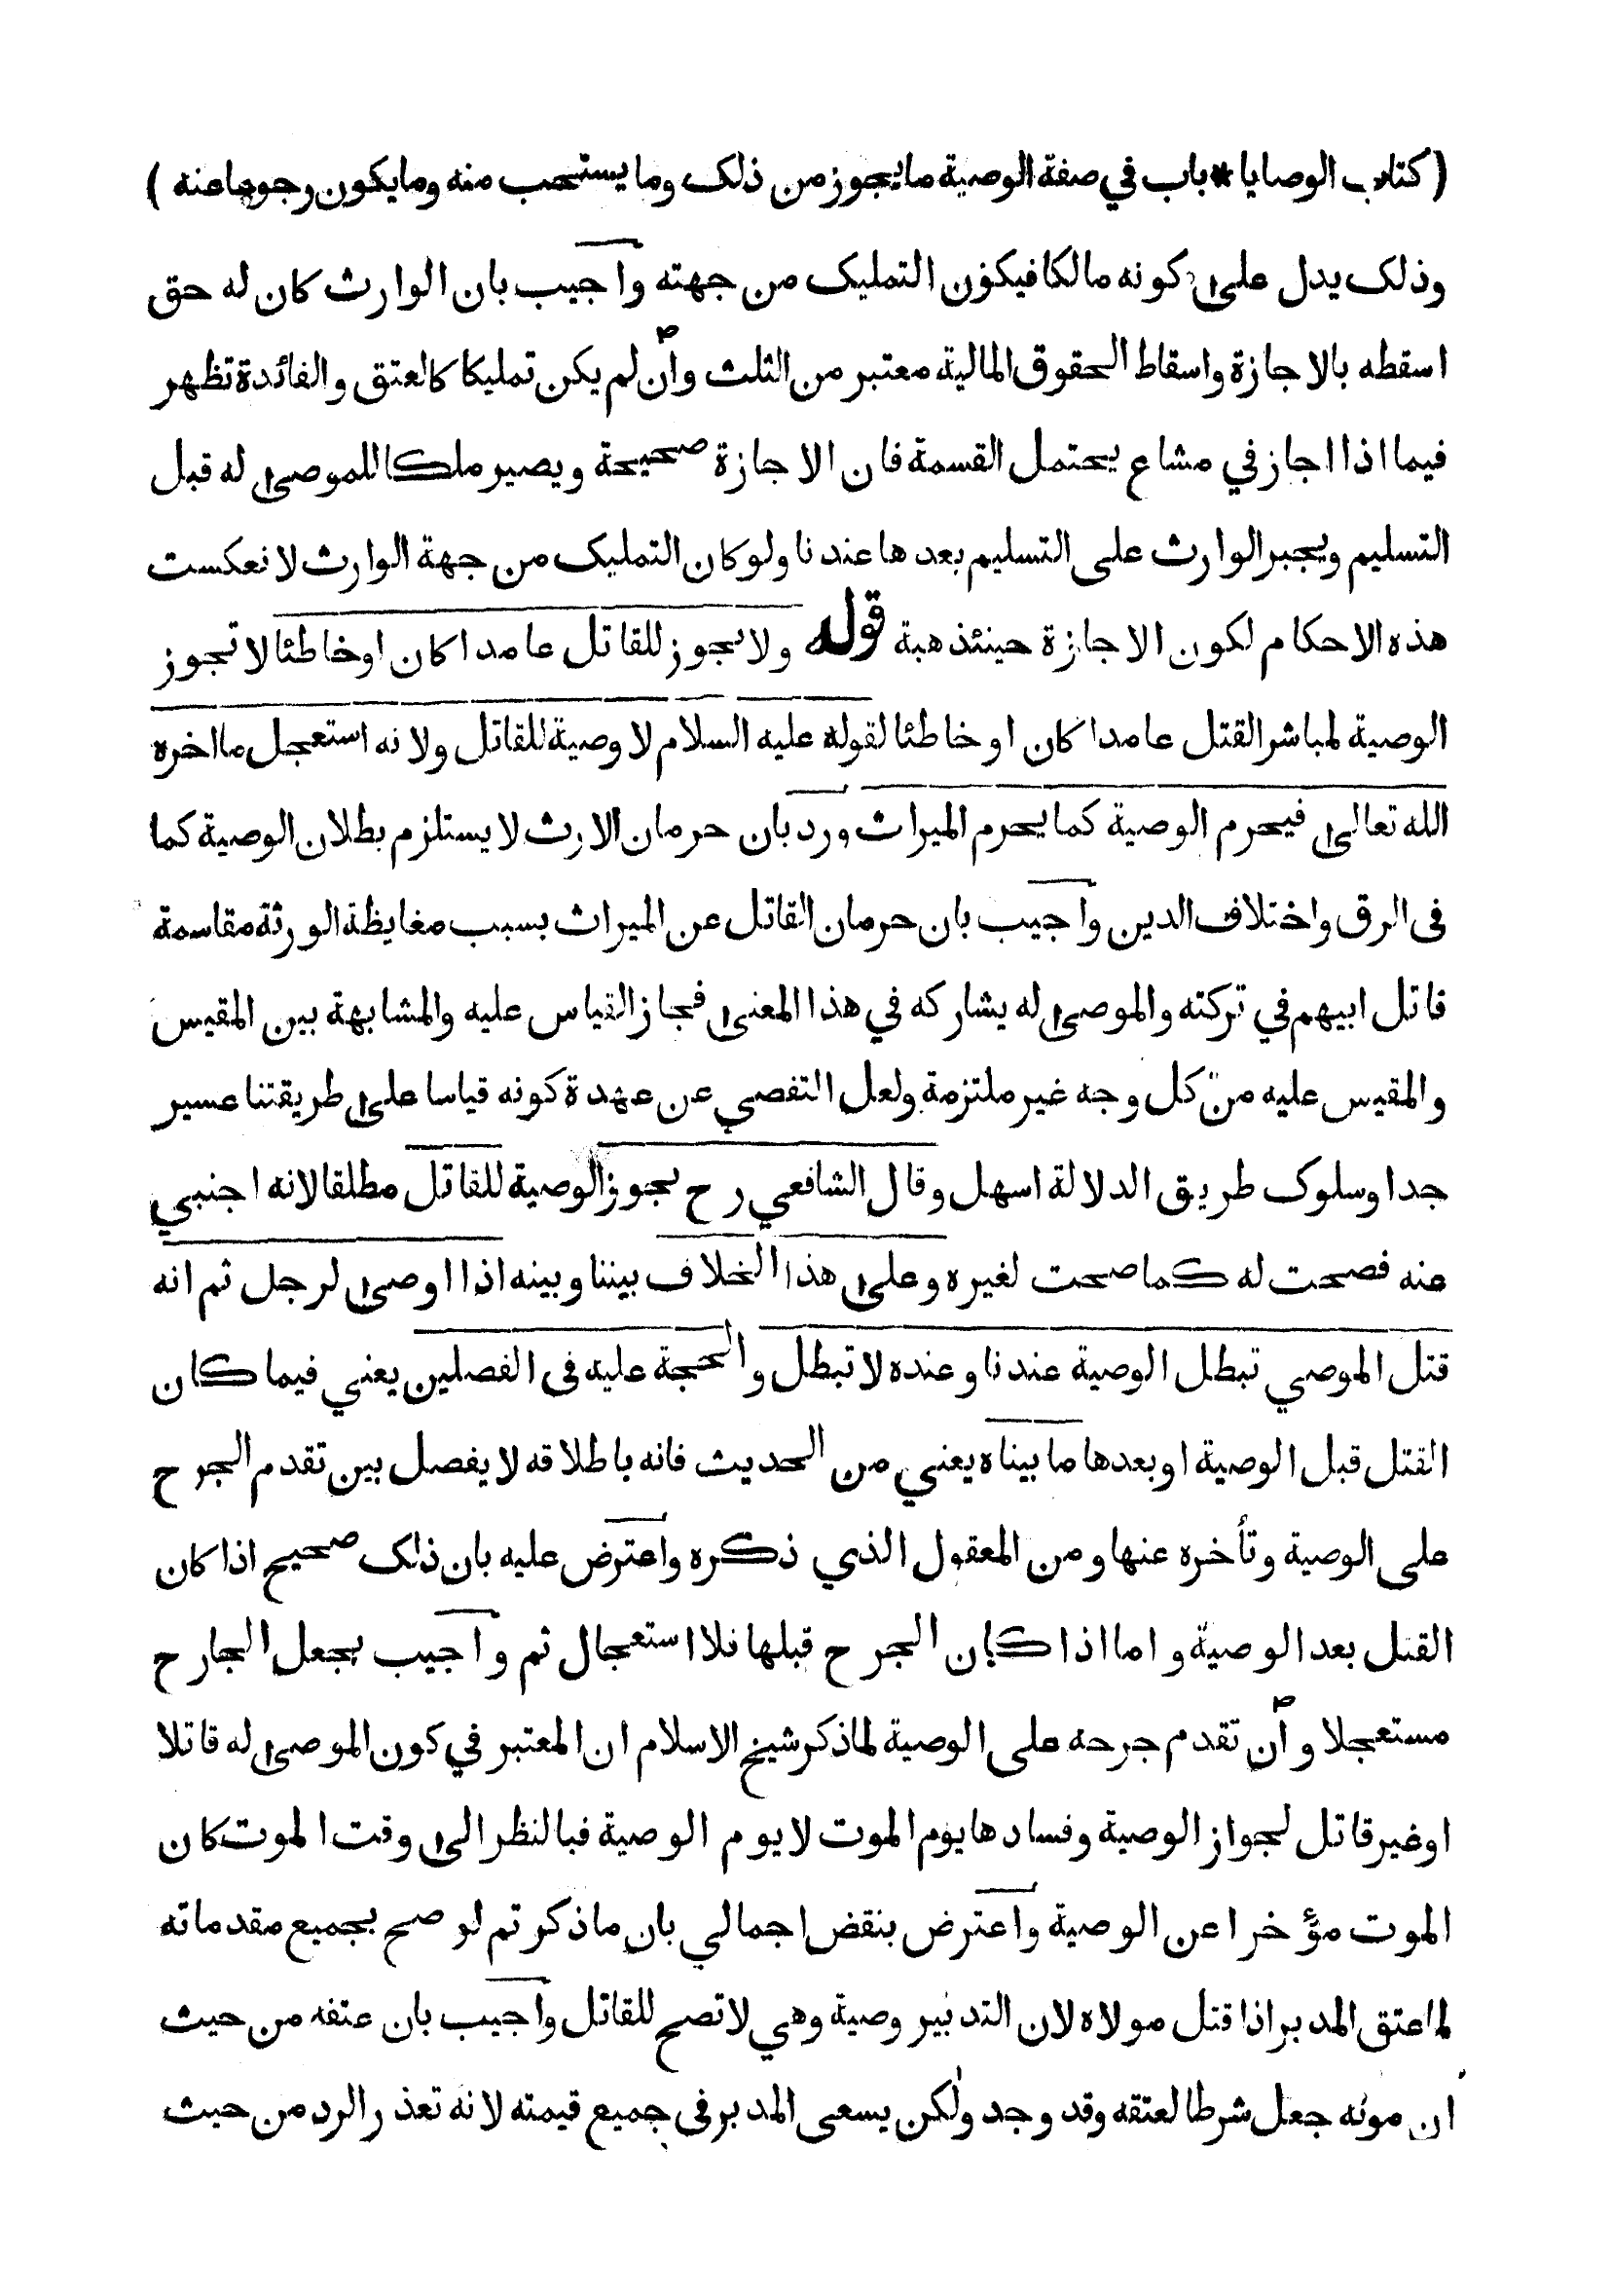 ( كتاب الوصايا * باب في صفة الوصية ما يجوز من ذلك وما يستحب منه وما يكون رجوعا عنه )
وذلك يدل على كونه مالكا فيكون التمليك من جهته واجيب بان الوارث كان له حق
اسقطه بالاجازة واسقاط الحقوق المالية معتبر من الثلث وان لم يكن تمليكا كالعتق والفائدة تظهر
فيما اذا اجاز في مشاع يحتمل القسمة فان الاجازة صحيحة ويصير ملكا للموصى له قبل
التسليم ويجبر الوارث على التسليم بعدها عندنا ولو كان التمليك من جهة الوارث لانعكست
هذه الاحكام لكون الاجازة حينئذ هبة قوله ولا يجوز للقاتل عامدا كان اوخاطئا لا تجوز
الوصية لمباشر القتل عامدا كان او خاطئا لقوله عليه السلام لا وصية للقاتل ولانه استعجل ما اخره
الله تعالى فيحرم الوصية كما يحرم الميراث ورد بان حرمان الارث لا يستلزم بطلان الوصية كما
فى الرق واختلاف الدين واجيب بان حرمان القاتل عن الميراث بسبب مغايظة الورثة مقاسمة
قاتل ابيهم في تركته والموصى له يشاركه في هذا المعنى فجاز القياس عليه والمشابهة بين المقيس
والمقيس عليه من كل وجه غير ملتزمة ولعل التفصي عن عهدة كونه قياسا على طريقتنا عسير
جدا وسلوك طريق الدلالة اسهل وقال الشافعي رح يجوز الوصية للقاتل مطلقا لانه اجنبي
عنه فصحت له كما صحت لغيره وعلى هذا الخلاف بيننا وبينه اذا اوصى لرجل ثم انه
قتل الموصي تبطل الوصية عندنا وعنده لا تبطل والحجة عليه فى الفصلين يعني فيما كان
القتل قبل الوصية او بعدها ما بيناه يعني من الحديث فانه باطلاقه لا يفصل بين تقدم الجرح
على الوصية وتأخره عنها ومن المعقول الذي ذكره واعترض عليه بان ذلك صحيح اذا كان
القتل بعد الوصية واما اذا كان الجرح قبلها فلا استعجال ثم واجيب بجعل الجارح
مستعجلا وان تقدم جرحه على الوصية لما ذكر شيخ الاسلام ان المعتبر في كون الموصى له قاتلا
اوغير قاتل لجواز الوصية وفسادها يوم الموت لا يوم الوصية فبالنظر الى وقت الموت كان
الموت مؤخرا عن الوصية واعترض بنقض اجمالي بان ما ذكرتم لو صح بجميع مقدماته
لما عتق المدبر اذا قتل مولاه لان التدبير وصية وهي لا تصح للقاتل واجيب بان عتقه من حيث
ان موته جعل شرطا لعتقه وقد وجد ولكن يسعى المدبر فى جميع قيمته لانه تعذر الرد من حيث